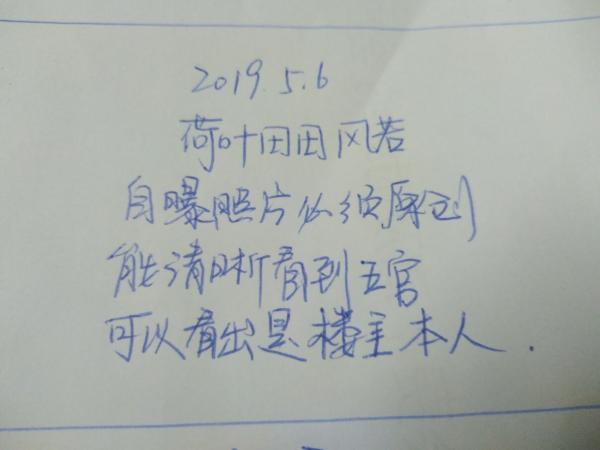 2019.5.6
荷叶田田风若
自曝照片必须原创
能清晰看到五官
可以看出是楼主本人.